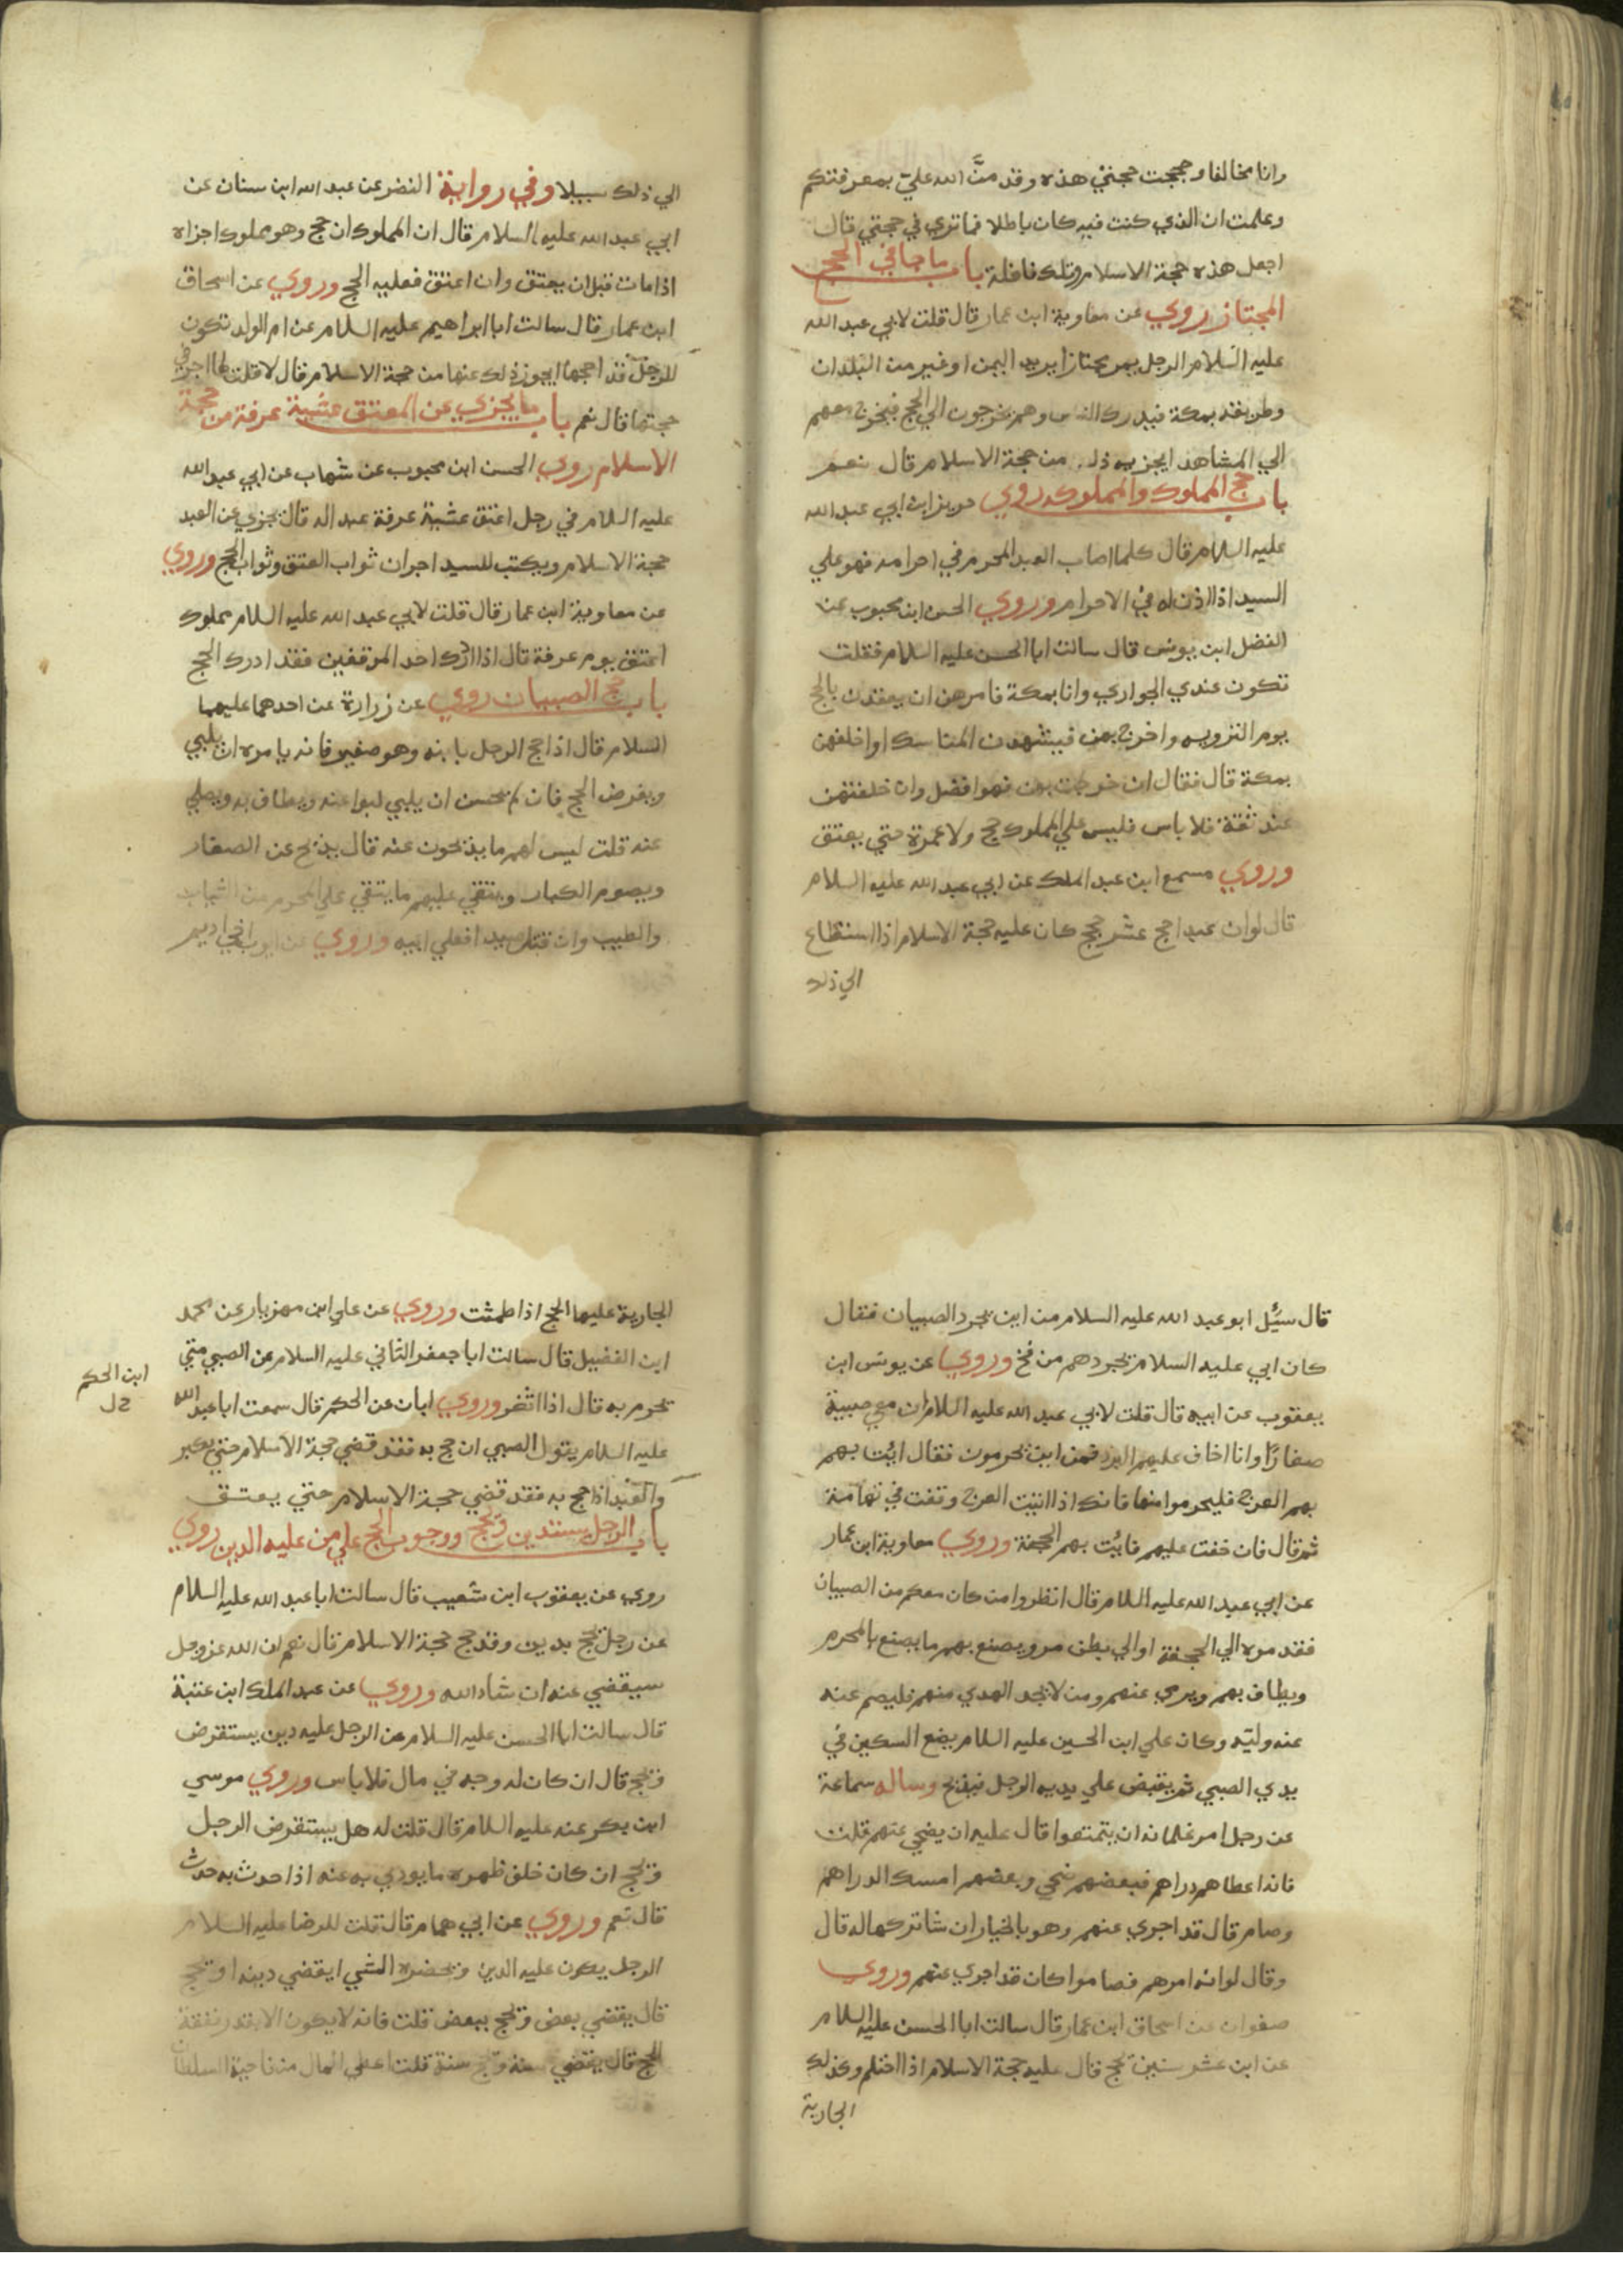 وانا مخالف وحججت حجتي هذه وقد منَّ الله عليّ بمعرفتكم
وعلمت ان الذي كنت فيه كان باطلا فما تري في حجتي قال
اجعل هذه حجة الاسلام وتلك نافلة باب ما جا في الحج
المجتاز روي عن معاوية ابن عمار قال قلت لابي عبد الله
عليه السلام الرجل يمر مجتازا يريد اليمن او غير من البلدان
وطريقه بمكة فيدرك الناس وهم يخرجون الي الحج فيخرج معهم
الي المشاهد ايجزيه ذلك من حجة الاسلام قال نعم
باب حج المملوك والمملوكه روي حريز ابن ابي عبد الله
عليه السلام قال كلما اصاب العبد المحرم في احرامه فهو علي
السيد اذا اذن له في الاحرام وروي الحسن ابن محبوب عن
الفضل ابن يونس قال سالت ابا الحسن عليه السلام فقلت
تكون عندي الجواري وانا بمكة فامرهن ان يعقدن بالحج
يوم الترويه واخرج بهن فيشهدن المناسك او اخلفهن
بمكة قال فقال ان خرجت بهن فهو افضل وان خلفتهن
عند ثقة فلا باس فليس علي المملوك حج ولا عمرة حتي يعتق
وروي مسمع ابن عبد الملك عن ابي عبد الله عليه السلام
قال لو ان عبدا حج عشر حجج كان عليه حجة الاسلام اذا استطاع
الي ذلك
الي ذلك سبيلا وفي رواية النضر عن عبد الله ابن سنان عن
ابي عبد الله عليه السلام قال ان المملوك ان حج وهو مملوك اجزاه
اذا مات قبل ان يعتق وان اعتق فعليه الحج وروي عن اسحاق
ابن عمار قال سالت ابا ابراهيم عليه السلام عن ام الولد تكون
للرجل قد احجها ايجوز ذلك عنها من حجة الاسلام قال لا قلت لها اجر في
حجتها قال نعم باب ما يجزي عن المعتق عشية عرفة من حجة
الاسلام روي الحسن ابن محبوب عن شهاب عن ابي عبد الله
عليه السلام في رجل اعتق عشية عرفة عبد اله قال يجزي عن العبد
حجة الاسلام ويكتب للسيد اجران ثواب العتق وثواب الحج وروي
عن معاوية ابن عمار قال قلت لابي عبد الله عليه السلام مملوك
اعتق يوم عرفة قال اذا ادرك احد الموقفين فقد ادرك الحج
باب حج الصبيان روي عن زرارة عن احدهما عليهما
السلام قال اذا حج الرجل بابنه وهو صغير فانه يامره ان يلبي
ويفرض الحج فان لم يحسن ان يلبي لبوا عنه ويطاف به ويصلي
عنه قلت ليس لهم ما يذبحون عنه قال يذبح عن الصغار
ويصوم الكبار ويتقي عليهم ما يتقي علي المحرم من الثياب
والطيب وان قتل صيدا فعلي ابيه وروي عن ايوب اخي اديم
قال سَيُل ابو عبد الله عليه السلام من اين يجرد الصبيان فقال
كان ابي عليه السلام يجردهم من فخ وروي عن يونس ابن
يعقوب عن ابيه قال قلت لابي عبد الله عليه السلام ان معي صبية
صغارًا وانا اخاف عليهم البرد فمن اين يحرمون فقال ائت بهم
بهم العرج فليحرموا منها فانك اذا اتيت العرج وقفت في تهامة
ثم قال فان خفت عليهم فائت بهم الجحفة وروي معاوية ابن عمار
عن ابي عبد الله عليه السلام قال انظروا من كان معكم من الصبيان
فقدموه الي الجحفة او الي بطن مرو يصنع بهم ما يصنع بالمحرم
ويطاف بهم ويرمي عنهم ومن لا يجد الهدي منهم فليصم عنه
عنه وليّه وكان علي ابن الحسين عليه السلام يضع السكين في
يدي الصبي ثم يقبض علي يديه الرجل فيذبح وساله سماعة
عن رجل امر غلمانه ان يتمتعوا قال عليه ان يضحي عنهم قلت
فانه اعطاهم دراهم فبعضهم ضحي وبعضهم امسك الدراهم
وصام قال قد اجزي عنهم وهو بالخيار ان شا تركها له قال
وقال لو انه امرهم فصاموا كان قد اجزي عنهم وروي
صفوان عن اسحاق ابن عمار قال سالت ابا الحسن عليه السلام
عن ابن عشر سنين يحج قال عليه حجة الاسلام اذا احتلم وكذلك
الجارية
الجارية عليها الحج اذا طمثت وروي عن علي ابن مهزيار عن محمد
ابن الفضيل قال سالت ابا جعفر الثاني عليه السلام عن الصبي متي
يحرم به قال اذا اثغر وروي ابان عن الحكم قال سمعت ابا عبد الله
ابن الحكم
عليه السلام يقول الصبي ان حج به فقد قضي حجة الاسلام حتي يكبر
والعبد اذا حج به فقد قضي حجة الاسلام حتي يعتق
باب الرجل يستدين ويحج ووجوب الحج علي من عليه الدين روي
روي عن يعقوب ابن شعيب قال سالت ابا عبد الله عليه السلام
عن رجل يحج بدين وقد حج حجة الاسلام قال نعم ان الله عز وجل
سيقضي عنه ان شاء الله وروي عن عبد الملك ابن عتبة
قال سالت ابا الحسن عليه السلام عن الرجل عليه دين يستقرض
ويحج قال ان كان له وجه في مال فلا باس وروي موسي
ابن بكر عنه عليه السلام قال قلت له هل يستقرض الرجل
ويحج ان كان خلف ظهره ما يودي به عنه اذا حدث به حدث
قال نعم وروي عن ابي همام قال قلت للرضا عليه السلام
الرجل يكون عليه الدين ويحضره الشي ايقضي دينه او يحج
قال يقضي بعض ويحج ببعض قلت فانه لا يكون الا بقدر نفقة
الحج قال يقضي سنة ويحج سنة قلت اعطي المال من ناحية السلطان